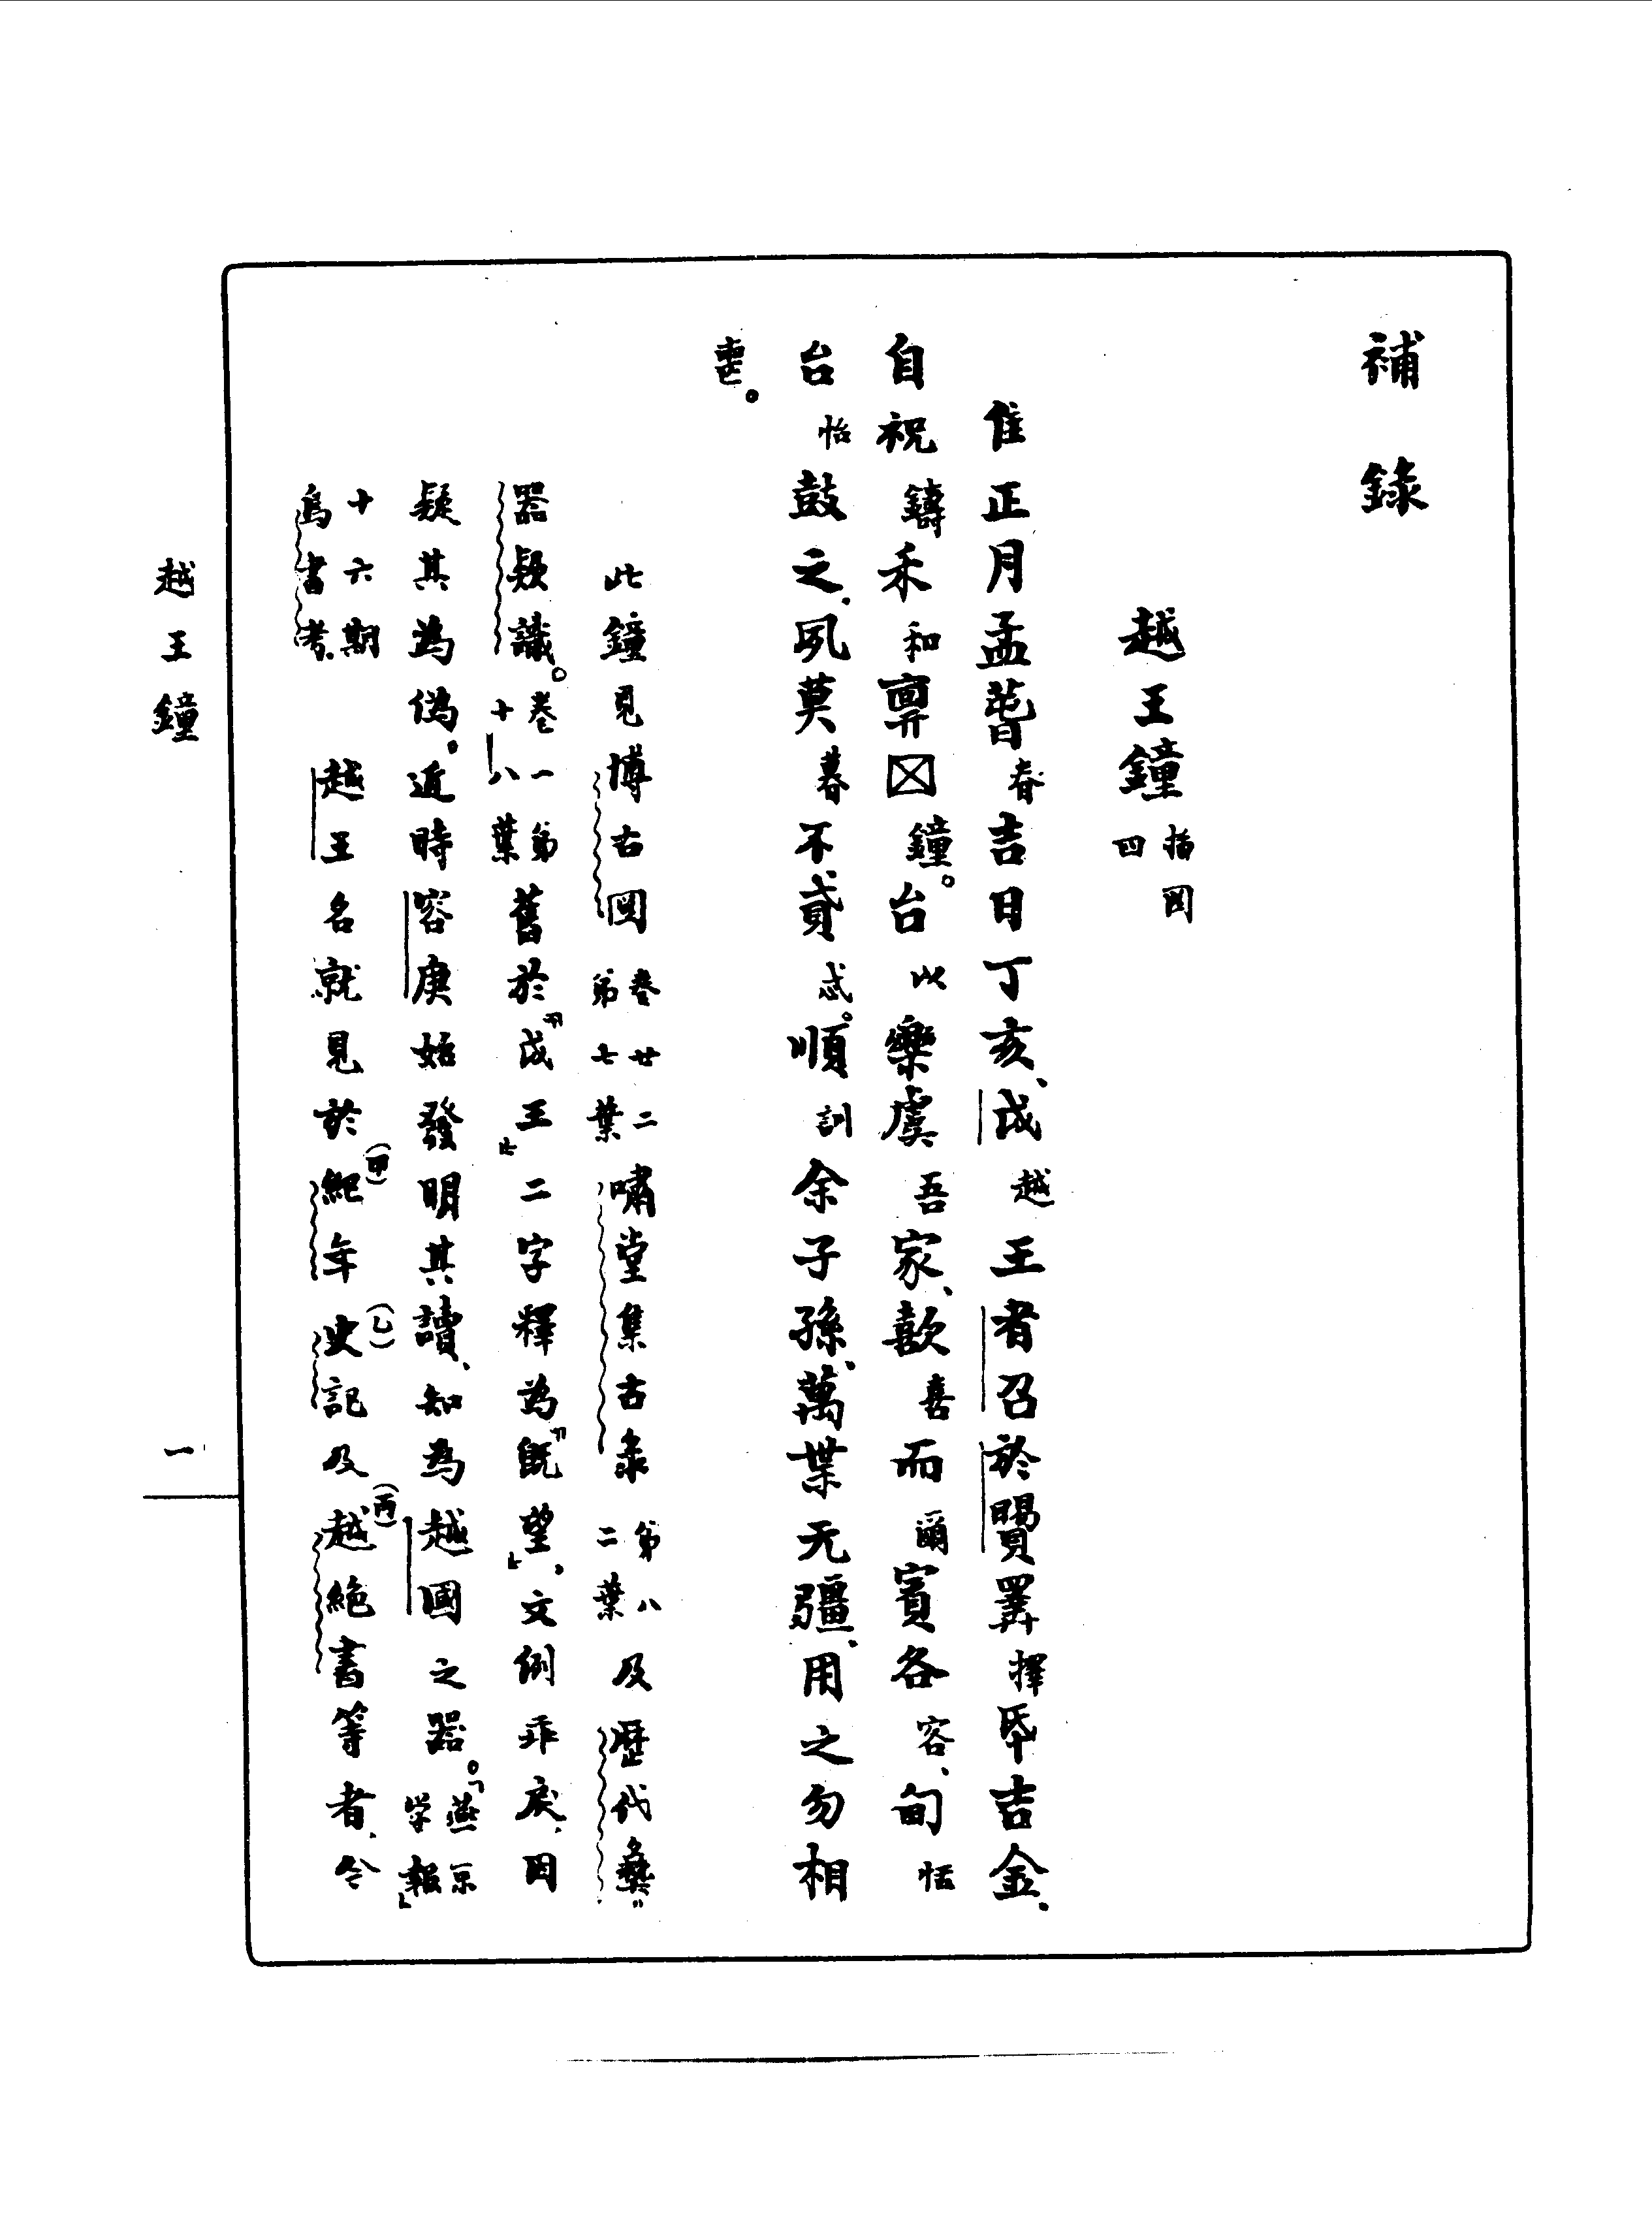 補錄
越王鐘插圖四
隹正月孟萅春吉日丁亥、戉越王者召於賜睪擇氒吉金、
自祝鑄禾和亶⊠鐘。台以樂虞吾家、歖喜而爾賓各客、甸恬
台怡鼓之、夙莫暮不貣忒。順訓余子孫、萬枼无疆、用之勿相
喪。
此鐘見博古圖卷廿二第七葉嘯堂集古录第八二葉及歷代彝〃
器款識。卷一第十八葉舊於『戉王』二字釋為『旣望』、文例乖戾、因
疑其為偽。近時容庚始發明其讀、知為越國之器。『燕京学報』
十六期鳥書考.越王名就見於(甲)紀年(乙)史記及(丙)越絕書等者、今
越王鐘
一